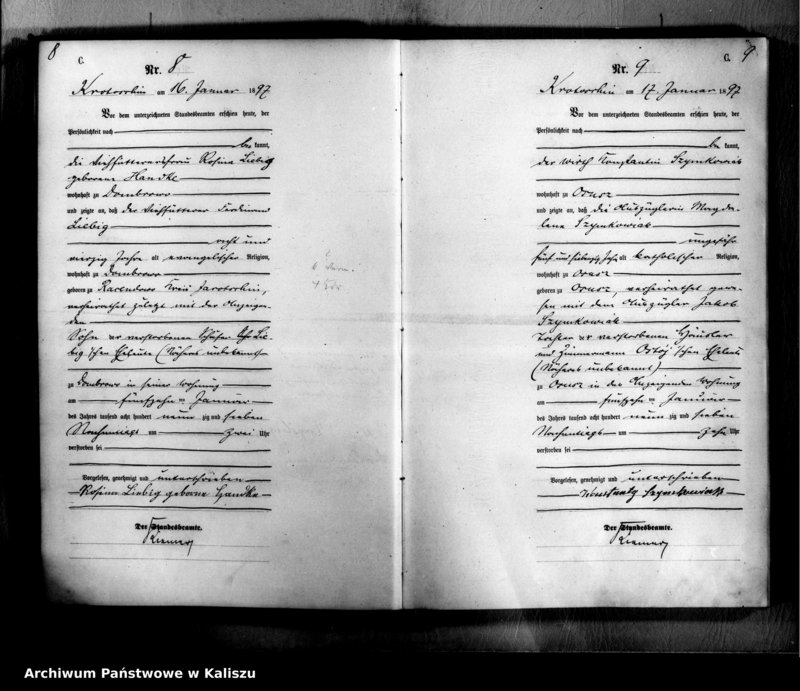 8
C.
Nr. 8
Krotoschin am 16. Januar 1897
Vor dem unterzeichneten Standesbeamten erschien heute, der
Persönlichkeit nach
be kannt,
die Viehfütterersfrau Rosina Liebig
geborene Handke
wohnhaft zu Dombrowo
und zeigte an, daß der Viehfütterer Ferdinand
Liebig
acht und
vierzig Jahre alt evangelischer Religion,
wohnhaft zu Dombrowo
geboren zu Kreis Jarotschin,
verheirathet zuletzt mit der Anzeigen-
den
Sohn der verstorbenen Schäfer Lie-
big'schen Eheleute (Näheres unbekannt)
zu Dombrowo in seiner Wohnung
am fünfzehn ten Januar
des Jahres tausend acht hundert neun zig und sieben
Nachmittags um zwei Uhr
verstorben sei
Vorgelesen, genehmigt und unterschrieben
Rosina Liebig geborne Handke
Der Standesbeamte.
C. 9
Nr. 9
Krotoschin am 17. Januar 1897
Vor dem unterzeichneten Standesbeamten erschien heute, der
Persönlichkeit nach
be kannt,
der Wirth Konstantin Szymkowiak
wohnhaft zu Orusz
und zeigte an, daß die Auszüglerin Magda-
lena Szymkowiak
ungefähr
fünf und siebenzig Jahre alt katholischer Religion,
wohnhaft zu Orusz
geboren zu Orusz, verheirathet gewe-
sen mit dem Auszügler Jakob
Szymkowiak
Tochter der verstorbenen Häusler
und Zimmermann 'schen Eheleute
(Näheres unbekannt)
zu Orusz in der Anzeigenden Wohnung
am fünfzehn ten Januar
des Jahres tausend acht hundert neun zig und sieben
Nachmittags um zehn Uhr
verstorben sei
Vorgelesen, genehmigt und unterschrieben
Szymkowiak
Der Standesbeamte.
Archiwum Państwowe w Kaliszu